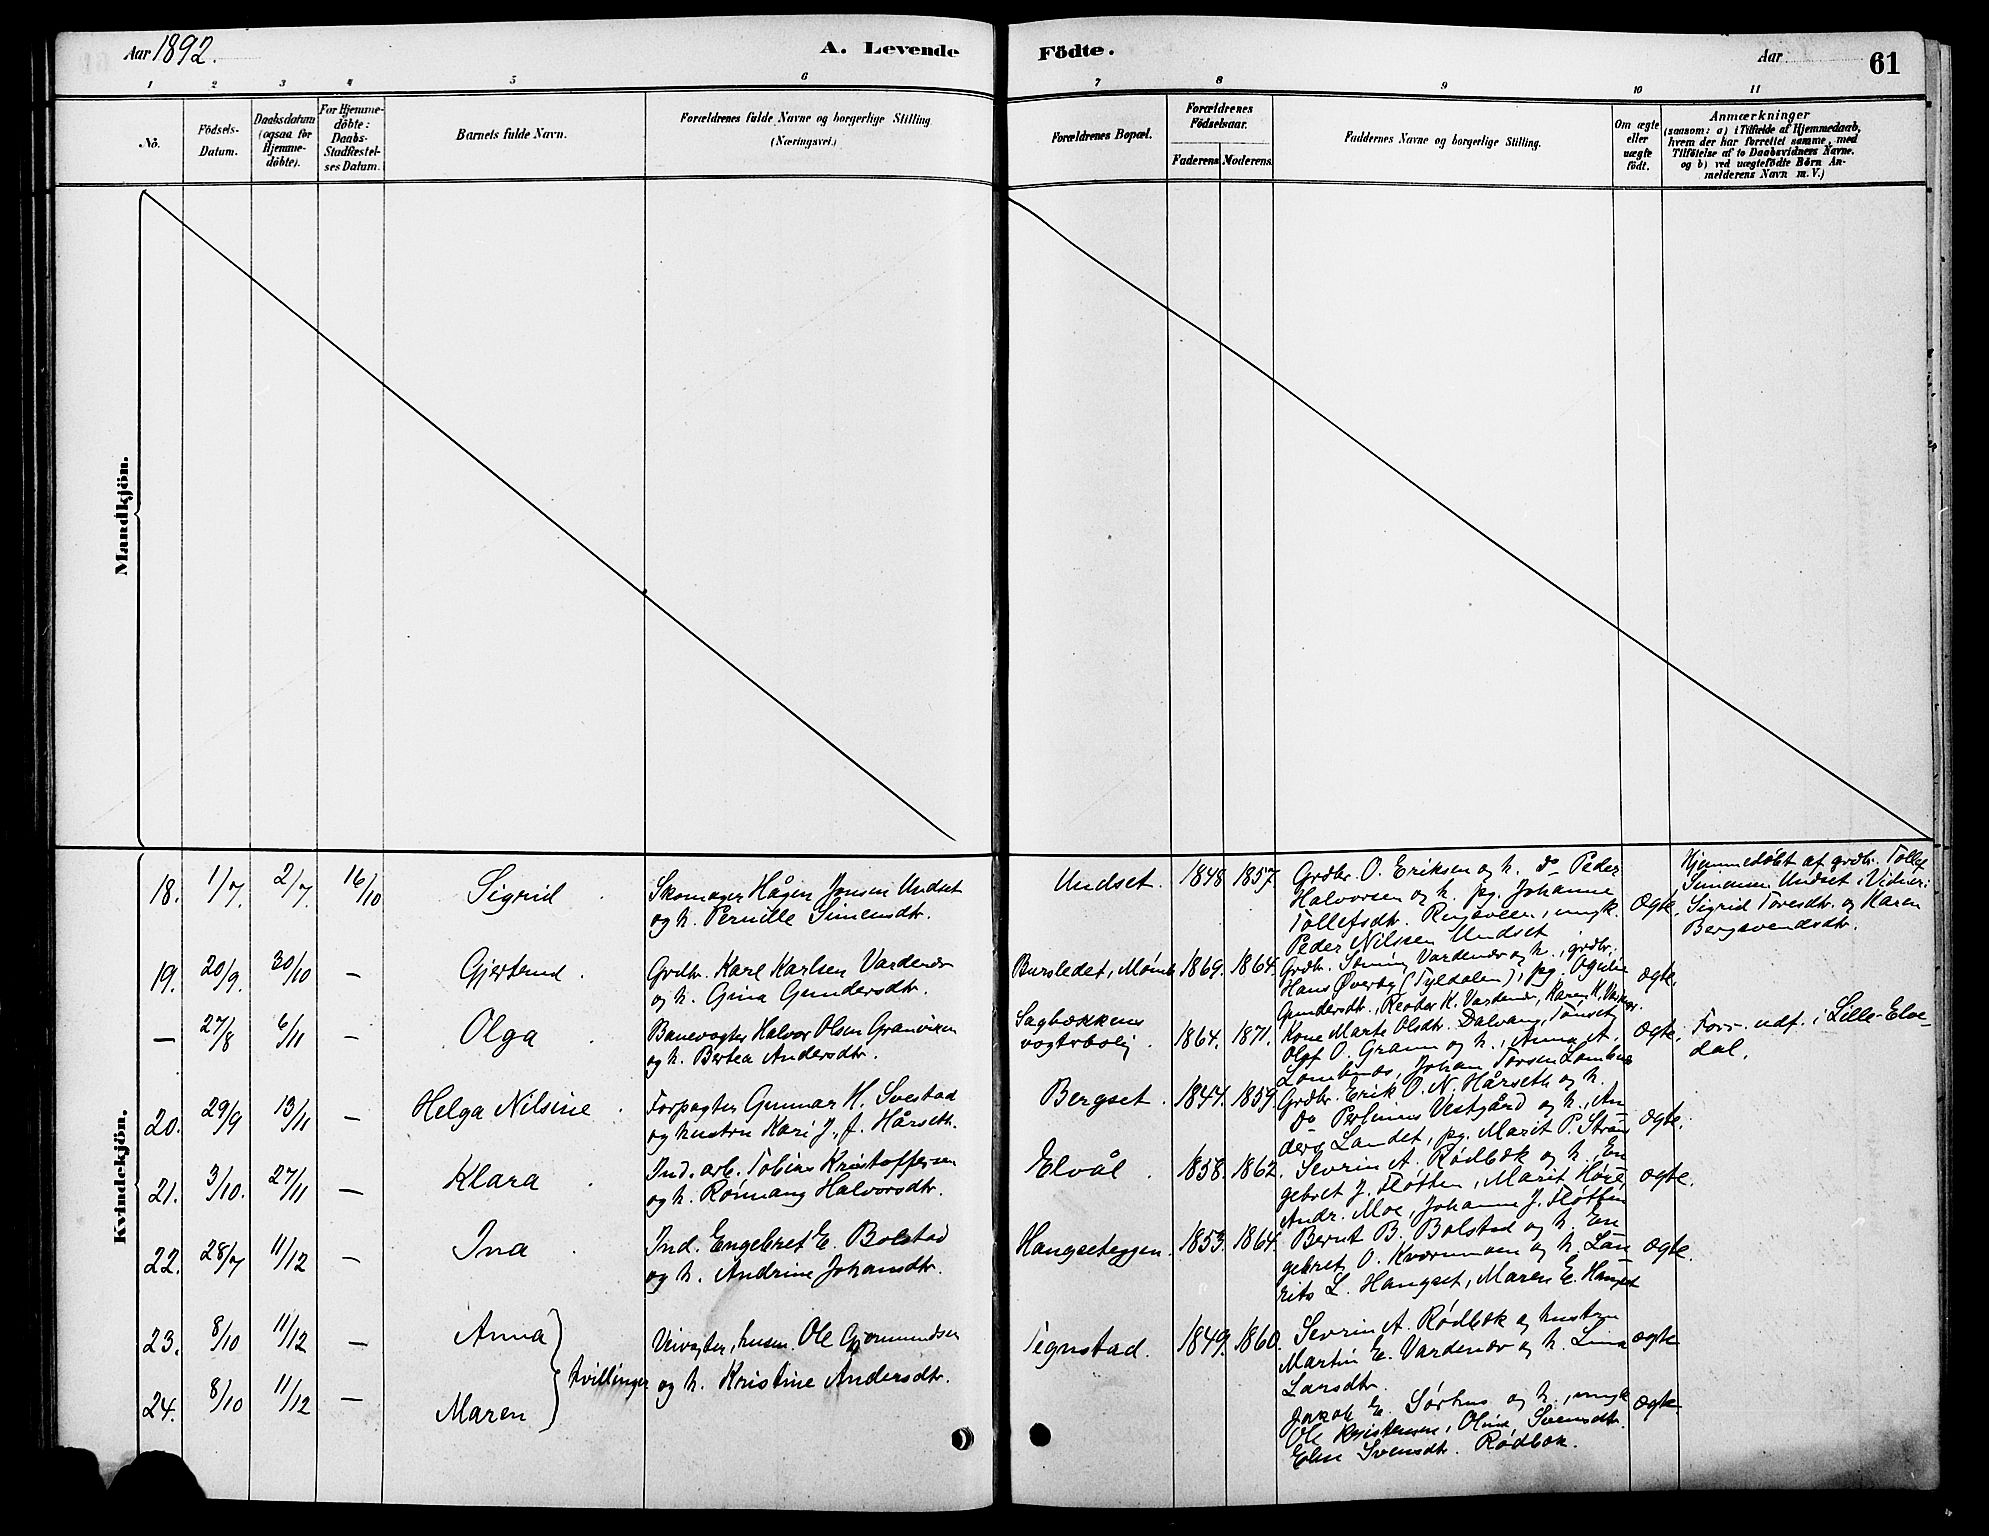 Aar 1892.
A. Levende
Födte.
Aar
61
1 2 3 4 5 6 7 8 9 10 11
Nô.
Födsels-
Datum.
Daabsdatum
(ogsaa för
Hjemme-
döbte).
For Hjemme-
döbte:
Daabs-
Stadfæstel-
ses Datum.
Barnets fulde Navn.
Forældrenes fulde Navne og borgerlige Stilling
(Næringsvei.)
Forældrenes Bopæl.
Forældrenes
Födselsaar.
Faderens.
Moderens.
Faddernes Navne og borgerlige Stilling.
Om ægte
eller
uægte
födt.
Anmærkninger
(saasom: a) i Tilfælde af Hjemmedaab,
hvem der har forrettet samme, med
Tilföielse af to Daabsvidners Navne.
og b) ved uægtefödte Börn An-
melderens Navn m.V.)
Mandkjön.
Kvindekjön.
18. 1/7. 2/7. 16/10 Sigrid.
Skomager Hågen Jonsen Undset
og h. Pernille Simensdtr.
Undset. 1848 1857.
Grdbr. O. Eriksen og h. do Peder
Halvorsen og h. pg. Johanne
Tollefsdtr. Ringsveen, ungk.
Peder Nilsen Undset
Ægte.
Hjemmedöbt af grdbr. Tollef
Simensen Undset. Vidner:
Sigrid Toresdtr. og Karen
Bergsvendsdtr.
19. 20/9. 30/10 — Gjertrud.
Grdbr. Karl Karlsen Vardenær
og h. Gina Gundersdtr.
1869. 1864.
Hans Øverby (Tyldalen), pg.
Gundersdtr.
ægte.
— 27/8 6/11 — Olga.
Banevogter Halvor Olsen Granviken
og h. Bertea Andersdtr.
Sagbækkens
vogterbolig. 1864. 1871.
Kone Marte Olsdtr. Dalvang, Tönset
Olaf O. Gramm og h., Anna A.
ægte.
Forr. udf. i Lille-Elve-
dal.
20. 29/9 13/11 — Helga Nilsine.
Forpagter Gunnar H. Svestad
og hustru Kari J. f. Hårseth.
Bergset. 1844. 1859.
Grdbr. Erik O. N. Hårseth og h.
Vestgård og h., An-
ders Landet, pg. Marit P. Strøm
ægte.
21. 3/10. 27/11 — Klara.
Ind. arb. Tobias Kristoffersen
og h. Rönnaug Halvorsdtr.
Elvål. 1858. 1862.
Sevrin A. Rödbæk og h. En-
gebret J. Flötten, Marit
Andr. Moe, Johanne J. Flötten
ægte.
22. 28/7 11/12 — Ina.
Ind. Engebret E. Bolstad
og h. Andrine Johansdtr.
Hangseteggen. 1853. 1864.
Bernt B. Bolstad og h. En-
gebret O. Kværnmoen og h. Lau-
rits L. Hangset, Maren E. Hangset
ægte.
23. 8/10 11/12 — Anna
24. 8/10 11/12 — Maren
tvillinger
Veivogter, husm. Ole Gjermundsen
og h. Kristine Andersdtr.
Tegnstad. 1849. 1860.
Sevrin A. Rödbæk og hustru
Martin E. Vardenær og h. Lina
Larsdtr.
ægte
Jakob E. Sørhus og h., ungk.
Ole Kristensen, Oline Svensdtr.
Elen Svensdtr. Rödbæk.
ægte